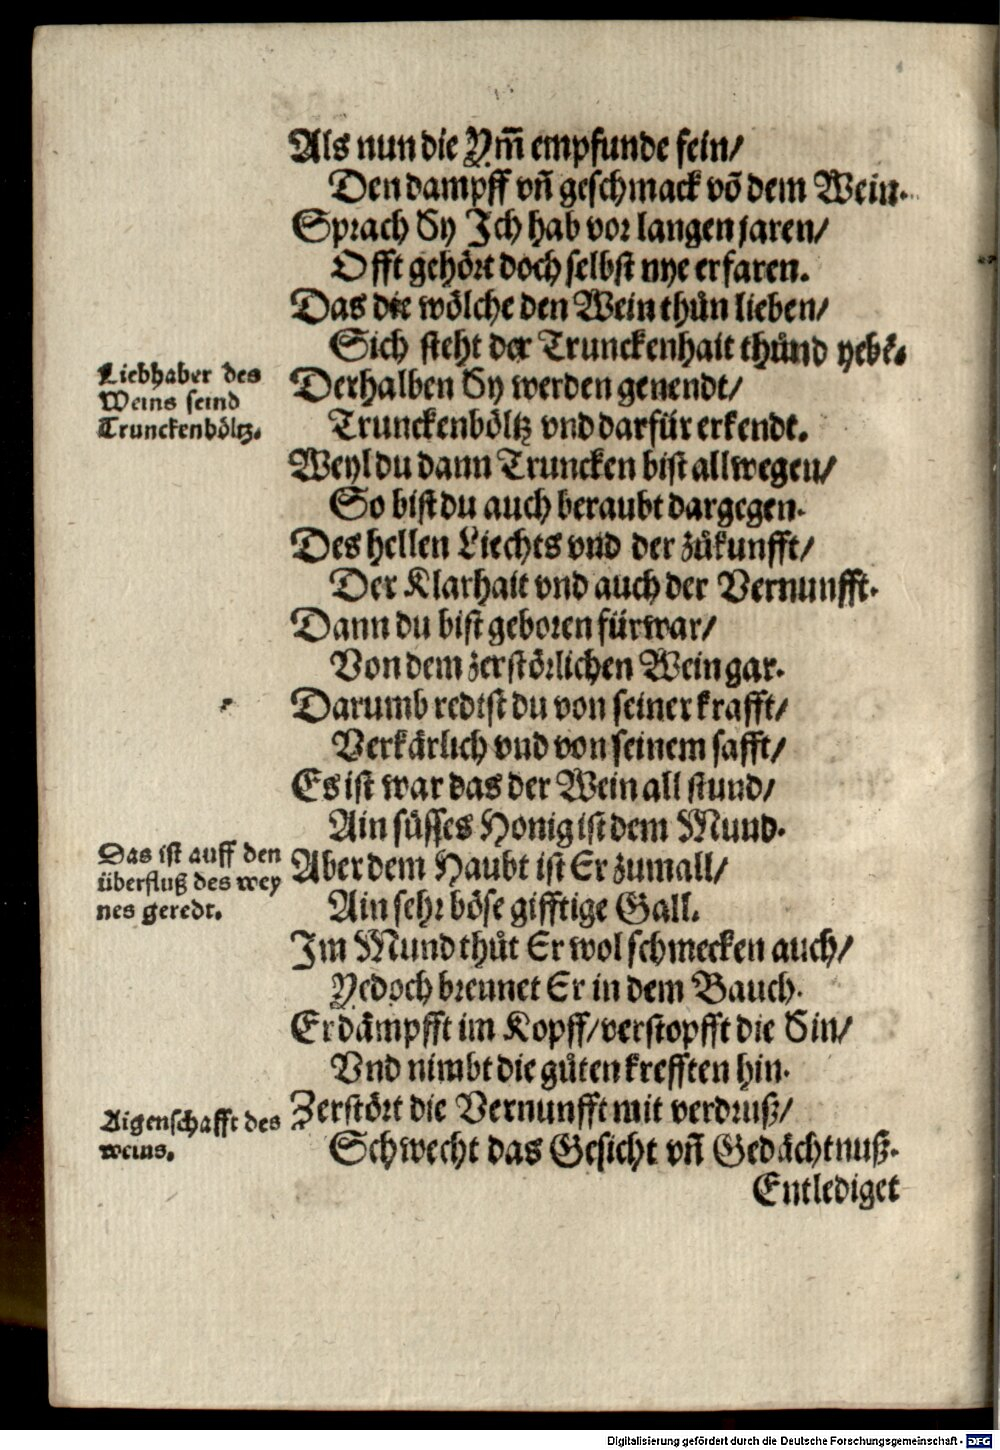 Als nun die Ym̃ empfunde fein/
Den dampff vñ geschmack võ dem Wein.
Sprach Sy Ich hab vor langen jaren/
Offt gehört doch selbst nye erfaren.
Das die wölche den Wein thůn lieben/
Sich steht der Trunckenhait thůnd yebẽ.
Liebhaber des
Weins seind
Trunckenböltz.
Derhalben Sy werden genendt/
Trunckenböltz vnd darfür erkendt.
Weyl du dann Truncken bist allwegen/
So bist du auch beraubt dargegen.
Des hellen Liechts vnd der zůkunfft/
Der Klarhait vnd auch der Vernunfft.
Dann du bist geboren fürwar/
Von dem zerstörlichen Wein gar.
Darumb redist du von seiner krafft/
Verkärlich vnd von seinem safft/
Es ist war das der Wein all stund/
Ain süsses Honig ist dem Mund.
Das ist auff den
überfluß des wey
nes geredt.
Aber dem Haubt ist Er zumall/
Ain sehr böse gifftige Gall.
Im Mund thůt Er wol schmecken auch/
Yedoch brennet Er in dem Bauch.
Er dämpfft im Kopff/verstopfft die Sin/
Vnd nimbt die gůten krefften hin.
Aigenschafft des
weins.
Zerstört die Vernunfft mit verdruß/
Schwecht das Gesicht vñ Gedächtnuß.
Entlediget
Digitalisierung gefördert durch die Deutsche Forschungsgemeinschaft - DFG